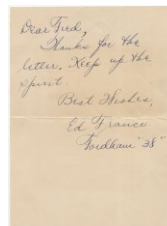 Dear Fred,
Thanks for the
letter. Keep up the
spirit.
Best Wishes,
Ed Franco
Fordham "38"